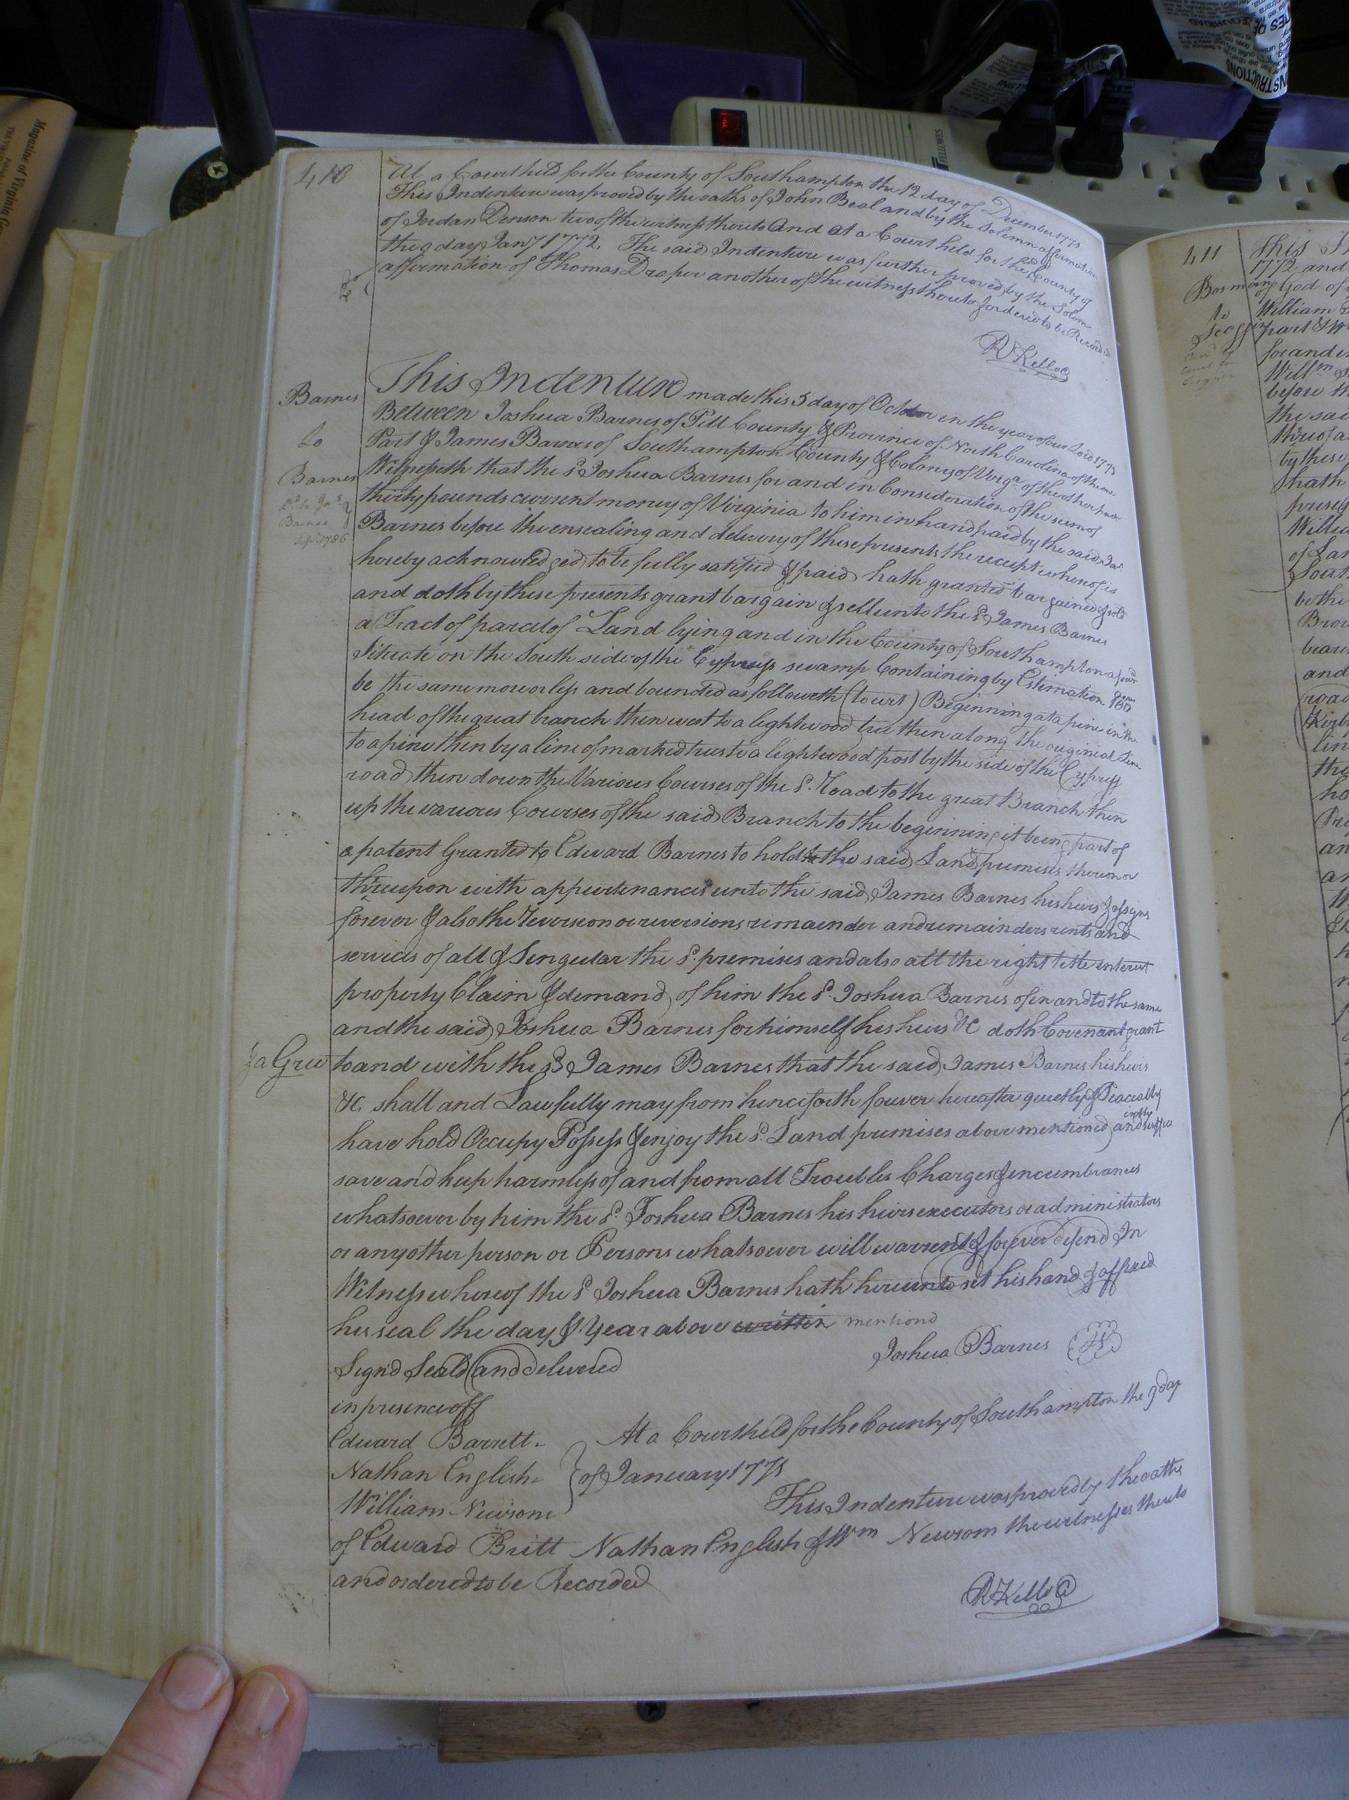 410
At a Court held for the County of Southampton the 12 day of December 1771
This Indenture was proved by the oaths of John Beal and by the Solemn affirmation
of Jordan Denson two of the witness thereto And at a Court held for the County of
the 9 day Jany 1772. The said Indenture was further proved by the Solem
affirmation of Thomas Draper another of the witness thereto & ordered to be Recorded
R Kello
Barnes
to
Barnes
Sept 1786
This Indenture made this 5 day of October in the year of our Lord 1771
Between Joshua Barnes of Pitt County & Province of North Carolina of the one
Part & James Barnes of Southampton County & Colony of Virga. of the other part
Witnesseth that the sd. Joshua Barnes for and in Consideration of the sum of
thirty pounds current money of Virginia to him in hand paid by the said Jas
Barnes before the ensealing and delivery of these presents the receipt whereof is
hereby acknowledged to be fully satisfied & paid hath granted bargained & sold
and doth by these presents grant bargain & sell unto the sd James Barnes
a Tract of parcel of Land lying and in the County of Southampton
Situate on the South side of the Cypress swamp Containing by Estimation
be the same more or less and bounded as followeth (to wit) Beginning at a pine in the
head of the great branch then west to a lightwood tree then along the original line
to a pine then by a line of marked trees to a lightwood post by the side of the Cypress
road then down the Various Courses of the sd. Road to the great Branch then
up the various Courses of the said Branch to the beginning it being part of
a patent Granted to Edward Barnes to hold the said Land premises thereon or
thereupon with appurtenances unto the said James Barnes his heirs & assigns
forever & also the Reversion or reversions remainder and remainders rents and
services of all & Singular the sd. premises and also all the right title interest
property Claim & demand of him the sd. Joshua Barnes of in and to the same
and the said Joshua Barnes for himself his heirs &c doth Covenant grant
& a Gree to and with the sd James Barnes that the said James Barnes his heirs
&c. shall and Lawfully may from henceforth forever hereafter quietly & Peaceably
have hold Occupy Possess & enjoy the sd. Land premises above mentioned and
save and keep harmless of and from all Troubles Charges & encumbrances
whatsoever by him the sd. Joshua Barnes his heirs executors or administrators
or any other person or Persons whatsoever will warrent & forever defend In
Witness whereof the sd Joshua Barnes hath hereunto set his hand & affixed
his seal the day & Year above written mentiond
Joshua Barnes
Signd Seald and delivered
in presence off
Edward Barrett
Nathan English
William Newsom
At a Court held for the County of Southampton the 9 day
of January 177
This Indenture was proved by the oaths
of Edward Britt Nathan English & Wm Newsom the witnesses thereto
and ordered to be Recorded
R Kello
411
This
1772 and
of God of
William
part & W
for and in
Willm
before th
the sai
by these
hath
Willia
of Lan
South
be the
bear
and
road
lin
the
ho
an
INSTRUCTIONS
FELLOWES
Magazine of Virginia